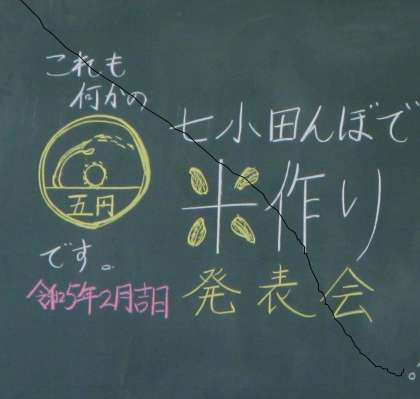 これも
何かの
五円
です。
令和5年2月吉日
七小田んぼで
米作り
発表会